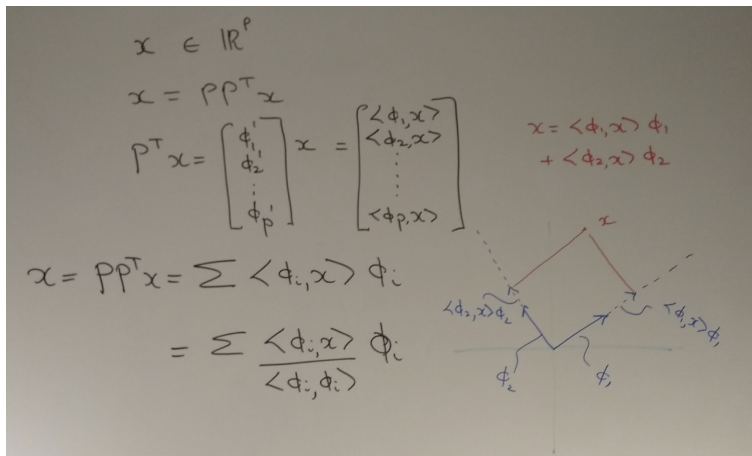 x ∈ ℝᵖ
x = PPᵀx
Pᵀx = [φ₁' φ₂' ⋮ φₚ'] x = [<φ₁,x> <φ₂,x> ⋮ <φₚ,x>]
x = <φ₁,x> φ₁
+ <φ₂,x> φ₂
x = PPᵀx = Σ <φᵢ,x> φᵢ
= Σ <φᵢ,x> / <φᵢ,φᵢ> φᵢ
x
<φ₂,x>φ₂
<φ₁,x>φ₁
φ₂
φ₁